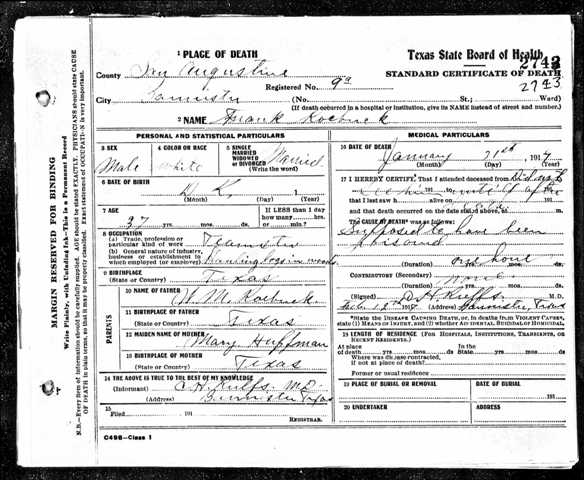 1 PLACE OF DEATH
Texas State Board of Health
2743
STANDARD CERTIFICATE OF DEATH
2743
County San Augustine
Registered No. 9a
City (No. St.; Ward)
(If death occurred in a hospital or institution, give its NAME instead of street and number.)
2 NAME Frank Roebuck
PERSONAL AND STATISTICAL PARTICULARS
3 SEX
Male
4 COLOR OR RACE
White
5 SINGLE
MARRIED
WIDOWED
or DIVORCED
(Write the word)
Married
6 DATE OF BIRTH
D K
(Month) (Day) (Year)
7 AGE
37 yrs. mos. ds.
If LESS than 1 day
how many hrs.
or min.
8 OCCUPATION
(a) Trade, profession or
particular kind of work Teamster
(b) General nature of industry,
business or establishment in
which employed (or employer) Hauling logs in woods
9 BIRTHPLACE
(State or Country) Texas
PARENTS
10 NAME OF FATHER
W. M. Roebuck
11 BIRTHPLACE OF FATHER
(State or Country) Texas
12 MAIDEN NAME OF MOTHER
Mary Huffman
13 BIRTHPLACE OF MOTHER
(State or Country) Texas
14 THE ABOVE IS TRUE TO THE BEST OF MY KNOWLEDGE
(Informant) MD
(Address) Texas
15
Filed 191
REGISTRAR.
C49B-Class 1
MEDICAL PARTICULARS
16 DATE OF DEATH
January 21st 191
(Month) (Day) (Year)
17 I HEREBY CERTIFY, That I attended deceased from Did not
see him 191 until after
that I last saw h alive on 191
and that death occurred on the date stated above, at m.
The CAUSE OF DEATH was as follows:
Supposed to have been
poisoned
(Duration) one hour
CONTRIBUTORY (Secondary) none
(Duration) yrs. mos. ds.
(Signed) M.D.
191 (Address) Texas
*State the DISEASE CAUSING DEATH, or, in deaths from VIOLENT CAUSES,
state (1) MEANS OF INJURY, and (2) whether ACCIDENTAL, SUICIDAL, or HOMICIDAL.
18 LENGTH OF RESIDENCE (FOR HOSPITALS, INSTITUTIONS, TRANSIENTS, OR
RECENT RESIDENTS.)
At place In the
of death yrs. mos. ds. State yrs. mos. ds.
Where was disease contracted,
if not at place of death?
Former or usual residence
19 PLACE OF BURIAL OR REMOVAL
DATE OF BURIAL
191
20 UNDERTAKER
ADDRESS
MARGIN RESERVED FOR BINDING
Write Plainly, with Unfading Ink—This is a Permanent Record
N.B.—Every item of information should be carefully supplied. AGE should be stated EXACTLY. PHYSICIANS should state CAUSE
OF DEATH in plain terms, so that it may be properly classified. Exact statement of OCCUPATION is very important.